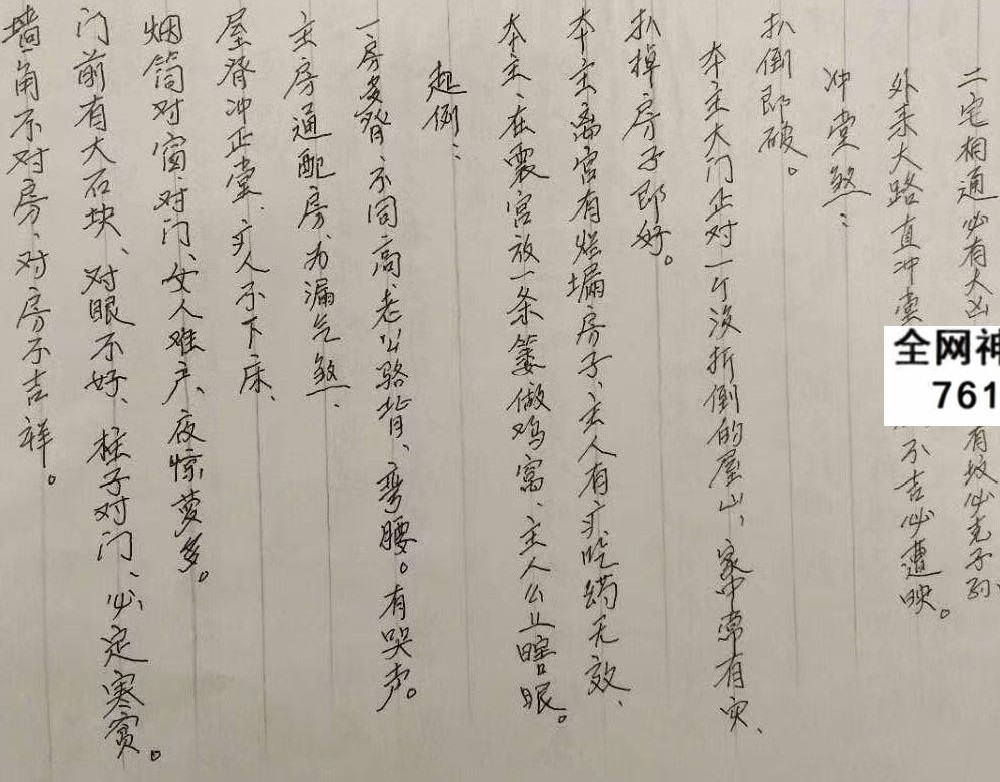 二宅相通必有大凶
有坟必克子孙、
外来大路直冲堂
不吉必遭映。
冲堂煞：
扒倒即破。
本主大门正对一个没折倒的屋山，家中常有灾、
扒掉房子即好。
本主离宫有烂塌房子、主人有疒吃药无效、
本主、在震宫放一条篓做鸡窝、主人么丄瞎眼。
起例：
一房多脊不同高老公骆背、弯腰。有哭声。
主房通配房为漏气煞、
屋脊冲正堂、疒人不下床、
烟筒对窗对门、女人难产、夜惊梦多。
门前有大石块、对眼不好、柱子对门、必定寒贫。
墙角不对房、对房不吉祥。
全网神
761